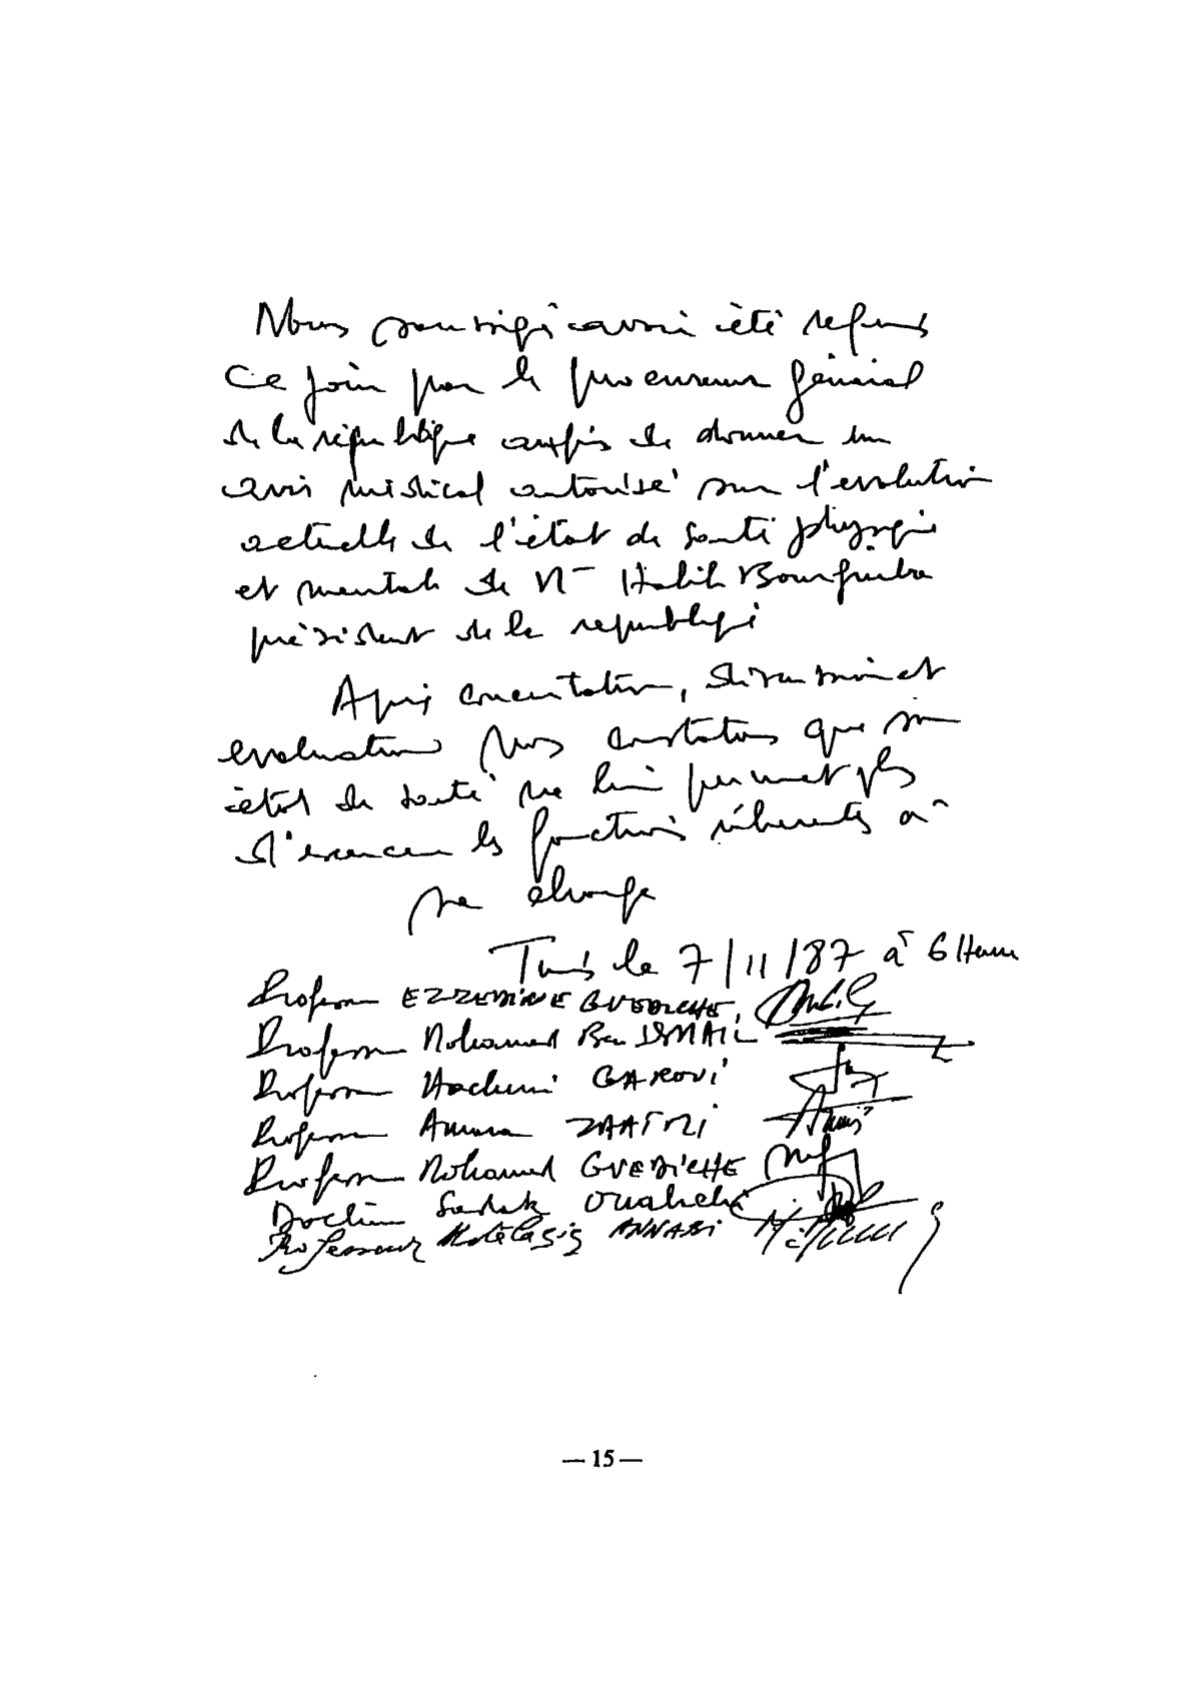 Nous soussignés avoir été requis
ce jour par le procureur général
de la république de donner un
avis médical autorisé sur l'evolution
actuelle de l'état de santé physique
et mentale de Mr Habib Bourguiba
président de la republique
Après concertation, discussion et
evaluation nous constatons que son
état de santé ne lui permet plus
d'exercer les fonctions inhérentes à
sa charge
Tunis le 7/11/87 à 6 Heures
Professeur EZZEDINE GUEDICHE,
Professeur Mohamed Ben ISMAIL
Professeur Hachemi GAROUI
Professeur Amara ZAAIMI
Professeur Mohamed GUEDICHE
Docteur Sadok Ouahchi
Professeur ANNABI
— 15 —